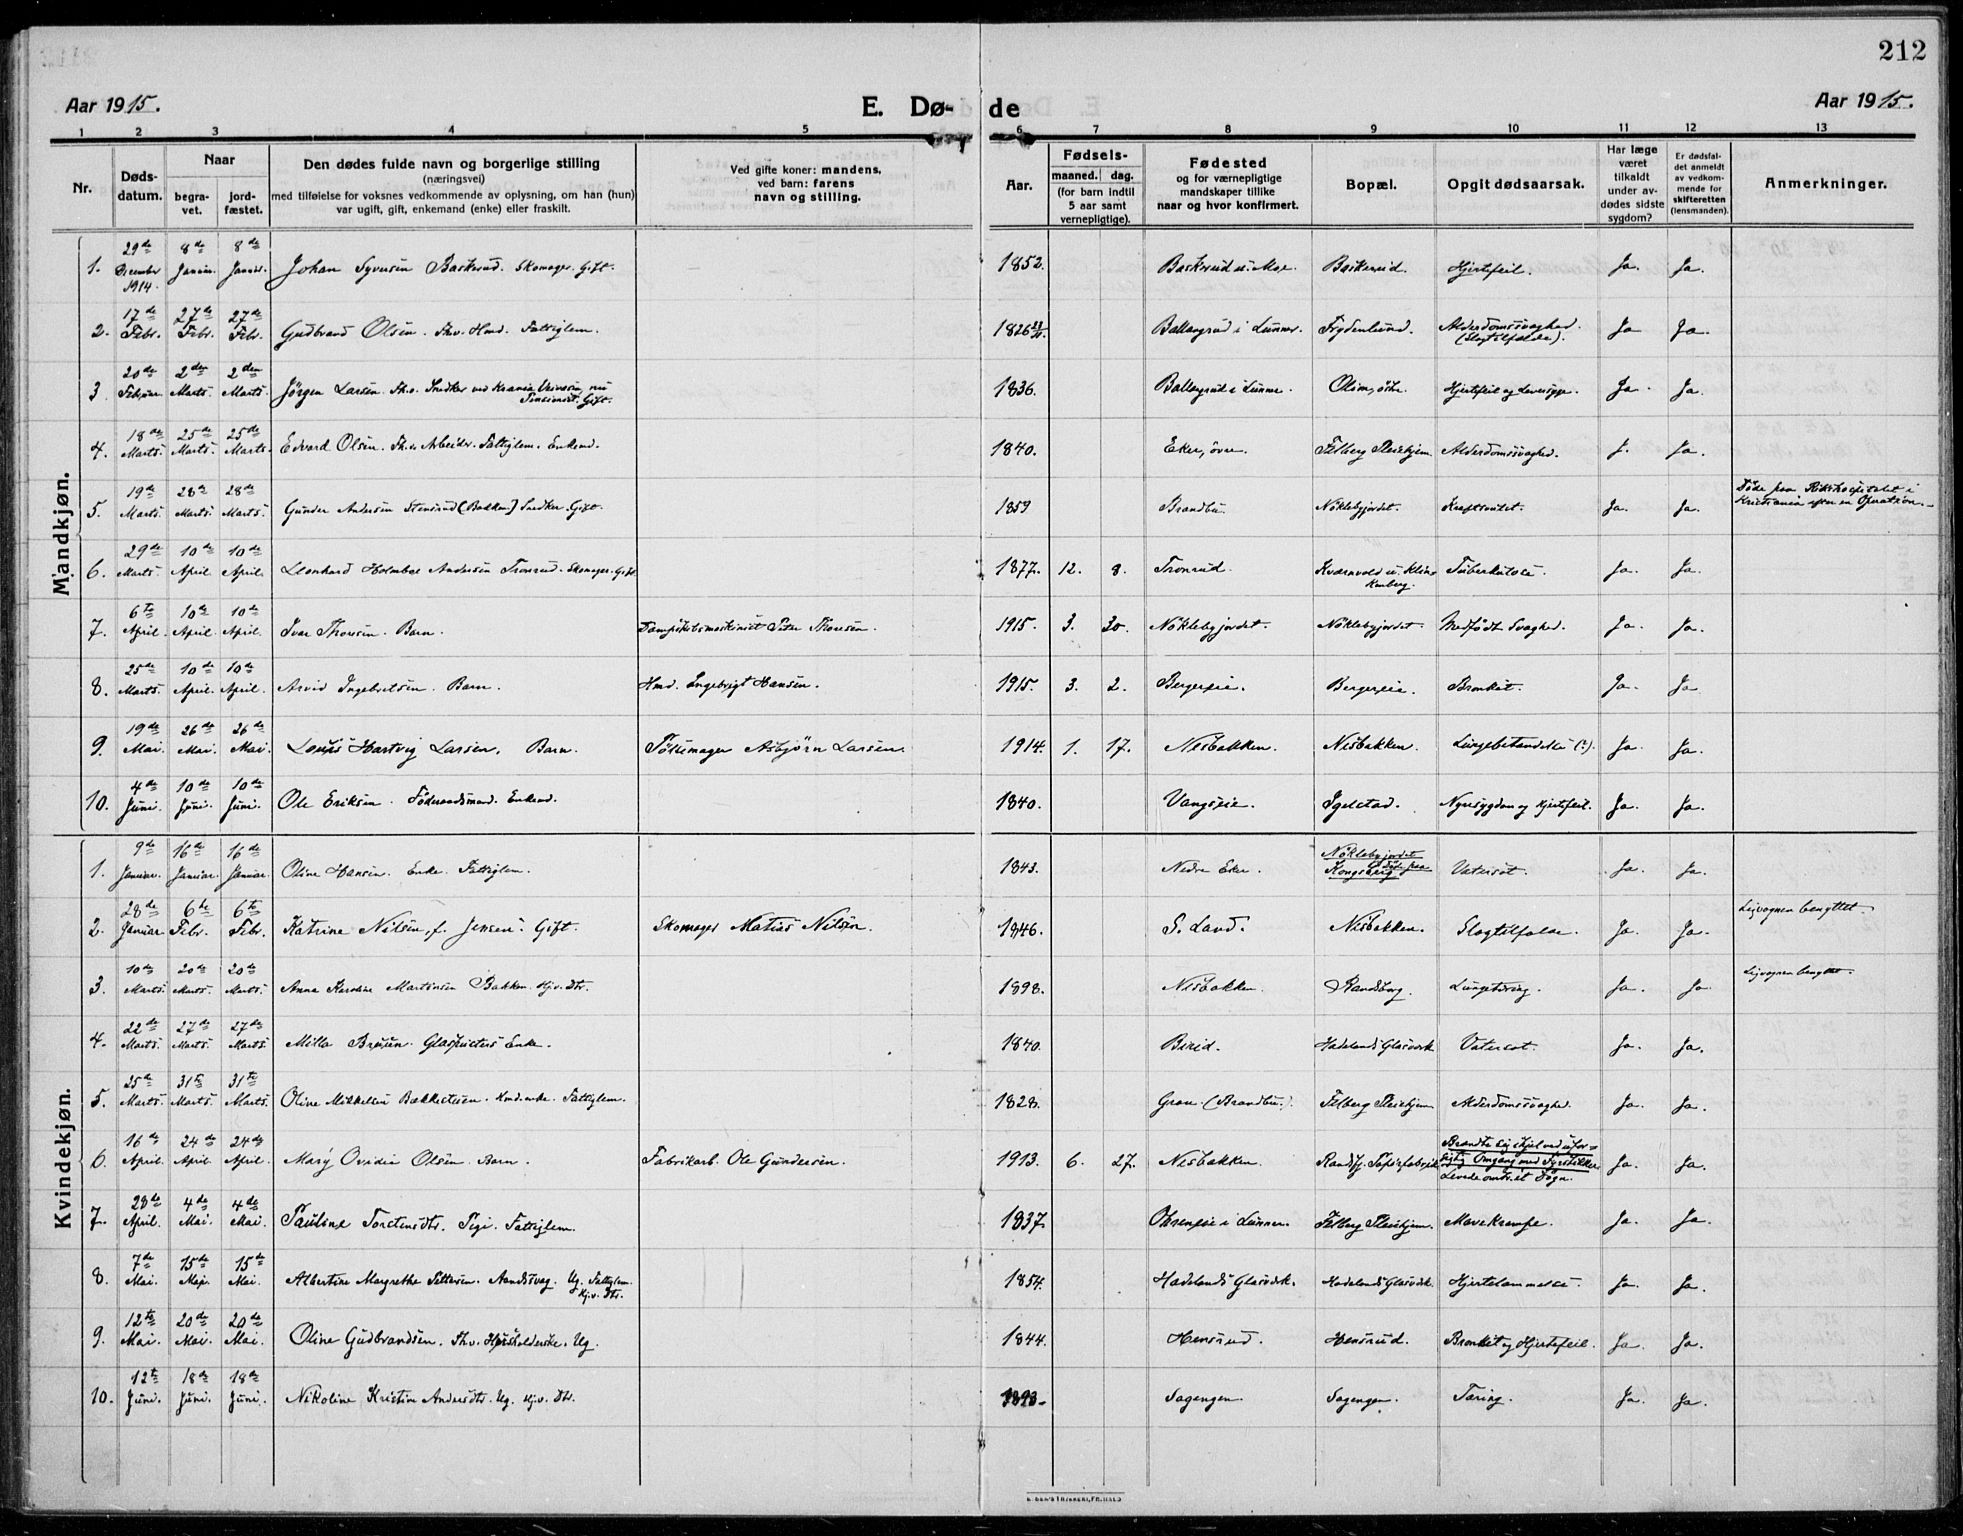 212
Aar 1915. E. Dø- de Aar 1915.
1 2 3 4 5 6 7 8 9 10 11 12 13
Nr. Døds-datum. Naar begra-vet. jord-fæstet. Den dødes fulde navn og borgerlige stilling (næringsvei) med tilføielse for voksnes vedkommende av oplysning, om han (hun) var ugift, gift, enkemand (enke) eller fraskilt. Ved gifte koner: mandens, ved barn: farens navn og stilling. Aar. Fødsels- maaned. dag. (for barn indtil 5 aar samt vernepligtige). Fødested og for værnepligtige mandskaper tillike naar og hvor konfirmert. Bopæl. Opgit dødsaarsak. Har læge været tilkaldt under av-dødes sidste sygdom? Er dødsfal-det anmeldt av vedkom-mende for skifteretten (lensmanden). Anmerkninger.
Mandkjøn.
1. 29de December 1914. 8de Januar. 8de Januar. Johan Syversen Baskerud. Skomager. Gift. 1852. Baskerud u. Moe. Baskerud. Hjertefeil. Ja. Ja.
2. 17de Febr. 27de Febr. 27de Febr. Gudbrand Olsen. Fhv. Hmd. Fattiglem. 1826 Ballangrud i Lunner. Frydenlund. Alderdomssvaghed. (Slagtilfælde). Ja Ja.
3 20de Februar 2den Marts. 2den Marts. Jørgen Larsen. Fhv. Snedker ved Krania Univers., nu Pensionist. Gift. 1836. Ballangrud i Lunner. Olim, østre. Hjertefeil og Leversyge. Ja. Ja.
4. 18de Marts. 25de Marts. 25de Marts. Edvard Olsen. Fhv. Arbeider. Fattiglem. Enkemd. 1840. Eker, øvre. Felberg Pleiehjem. Alderdomssvaghed. J. Ja.
5. 19de Marts. 28de Marts. 28de Marts. Gunder Andersen Stensrud (Bakken) Snedker. Gift. 1859 Brandbu. Nøklebyjordet. Kræftsvulst. Ja. Ja. Døde paa Rikshospitalet i Kristiania efter en Operation.
6. 29de Marts. 10de April. 10de April. Leonhard Holmboe Andersen Tronrud. Skomager. Gift. 1877. 12. 8. Tronrud. Kværnvold u. Klinkenberg. Tuberkulose. Ja. Ja.
7. 6te April. 10de April. 10de April. Ivar Thoresen. Barn. Dampskibsmaskinist Peter Thoresen. 1915. 3. 30. Nøklebyjordet. Nøklebyjordet. Medfødt Svaghed. Ja. Ja.
8. 25de Marts. 10de April. 10de April. Arvid Ingebretsen. Barn. Hmd. Ingebrigt Hansen. 1915. 3. 2. Bergereie. Bergereie. Bronkit. Ja. Ja
9. 19de Mai. 26de Mai. 26de Mai. Louis Hartvig Larsen. Barn. Pølsemager Asbjørn Larsen. 1914. 1. 17. Nesbakken. Nesbakken. Lungebetændelse (?). Ja. Ja.
10. 4de Juni. 10de Juni. 10de Juni. Ole Eriksen. Føderaadsmand. Enkemd. 1840. Vangseie. Igelstad. Nyresygdom og Hjertefeil. Ja. Ja.
Kvindekjøn.
1. 9de Januar. 16de Januar. 16de Januar. Oline Hansen. Enke. Fattiglem. 1843. Nedre Eker. Nøklebyjordet døde paa Kongsberg Vatersot. Ja. Ja.
2. 28de Januar 6te Febr. 6te Febr. Katrine Nilsen, f. Jensen. Gift. Skomager Matias Nilsen. 1846. S. Land. Nesbakken. Slagtilfælde. Ja. Ja. Ligvognen benyttet.
3. 10de Marts. 20de Marts. 20de Marts. Anna Karoline Martinsen Bakken. Hjv. Dtr. 1898. Nesbakken. Randsborg. Lungetæring. Ja. Ja Ligvognen benyttet.
4. 22de Marts. 27de Marts. 27de Marts. Milla Bresen. Glaspusters Enke. 1840. Birid. Hadelands Glasverk Vatersot. Ja. Ja.
5. 25de Marts. 31te Marts. 31te Marts. Oline Mikkelsen Bakkesteien. Hmd.enke. Fattiglem. 1828. Gran. (Brandbu.) Felberg Pleiehjem Alderdomssvaghed. Ja. Ja.
6. 16de April. 24de April. 24de April. Mary Ovidia Olsen. Barn. Fabrikarb. Ole Gundersen. 1913. 6. 27. Nesbakken. Randsfj. Papirfabrik Brændte sig ihjel ved uforsigtig Omgang med Fyrstikker Levede omtr. et Døgn. Ja. Ja.
7. 28de April. 4de Mai. 4de Mai. Pauline Torstensdtr. Pige. Fattiglem. 1837. Ohreneie i Lunner. Felberg Pleiehjem. Mavekrampe. Ja. Ja.
8. 7de Mai. 15de Mai. 15de Mai. Albertine Margrethe Pettersen. Aandssvag. Ug. Fattiglem. Hjv. Dtr. 1854. Hadelands Glasverk. Hadelands Glasverk. Hjertelammelse. Ja. Ja.
9. 12te Mai. 20de Mai. 20de Mai. Oline Gudbrandsen. Fhv. Husholderske. Ug. 1844. Hensrud. Hensrud. Bronkit og Hjertefeil. Ja. Ja.
10. 12te Juni. 18de Juni. 18de Juni. Nikoline Kristine Andersdtr. Ug. Hjv. Dtr. 1893. Sagengen. Sagengen. Tæring. Ja. Ja.